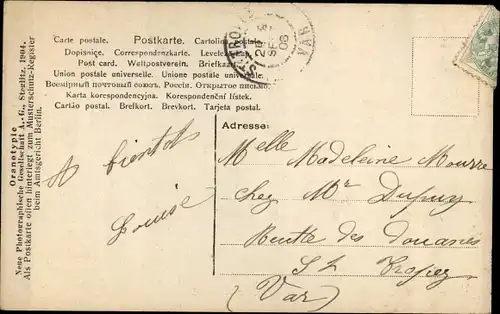 Carte postale. Postkarte. Cartolina
Dopisnice. Correspondenzkarte. Levele
Post card. Weltpostverein. Briefka
Union postale universelle. Unione postale universale.
Всемірный почтовый союзъ. Россія. Открытое письмо.
Karta korespondencyjna. Korespondenční lístek.
Cartão postal. Brefkort. Brevkort. Tarjeta postal.
VAR
08
Oranotypie
Neue Photographische Gesellschaft A.-G., Steglitz, 1904.
Als Postkarte offen hinterlegt zum Musterschutz-Register
beim Amtsgericht Berlin.
A bientôt
Louise
Adresse:
Melle Madeleine Mourre
chez Mr Dupuy
des douanes
St Tropez
(Var)